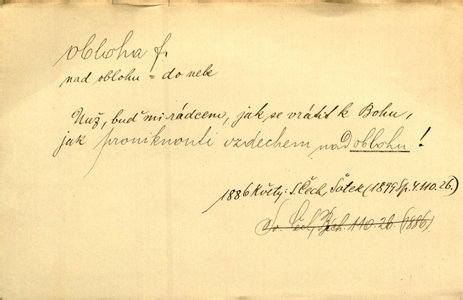 obloha f.
nad oblohu = do nebe
Nuž, buď mi rádcem, jak se vrátit k Bohu,
jak proniknouti vzdechem nad oblohu!
1886 Květy: S. Čech, Šotek (1899 Sp. 4. 110. 26.)
Sv. Čech, 110. 26. (1886)